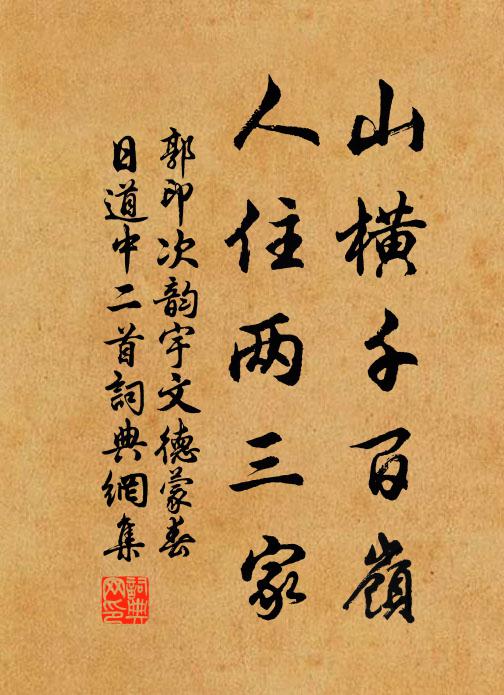 山橫千百嶺
人住两三家
郭印次韵宇文德蒙春
日道中二首詞典網集
詞典
网印